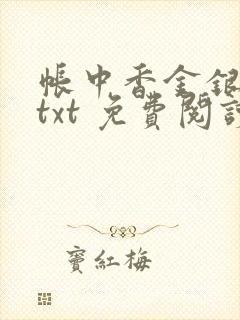 帳中香金銀
txt 免費閱讀
寶紅梅